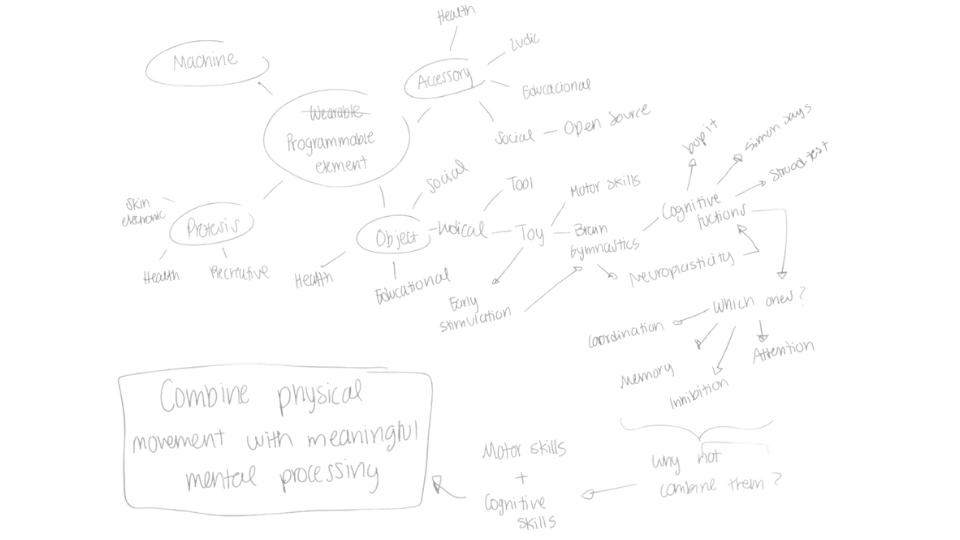 Health
Machine
Ludic
Accessory
Educacional
Wearable
Programmable
element
Social — Open Source
bop it
Simon says
Stroop test
Social
Tool
Motor Skills
Skin
electronic
Protesis
Cognitive
fuctions
Object
Ludical
Toy
Brain
Gymnastics
Health
Recreative
Health
Educational
Neuroplasticity
Early
stimulation
Which ones?
Coordination
Attention
Memory
Inhibition
Combine physical
movement with meaningful
mental processing
Motor skills
+
Cognitive
skills
Why not
combine them?